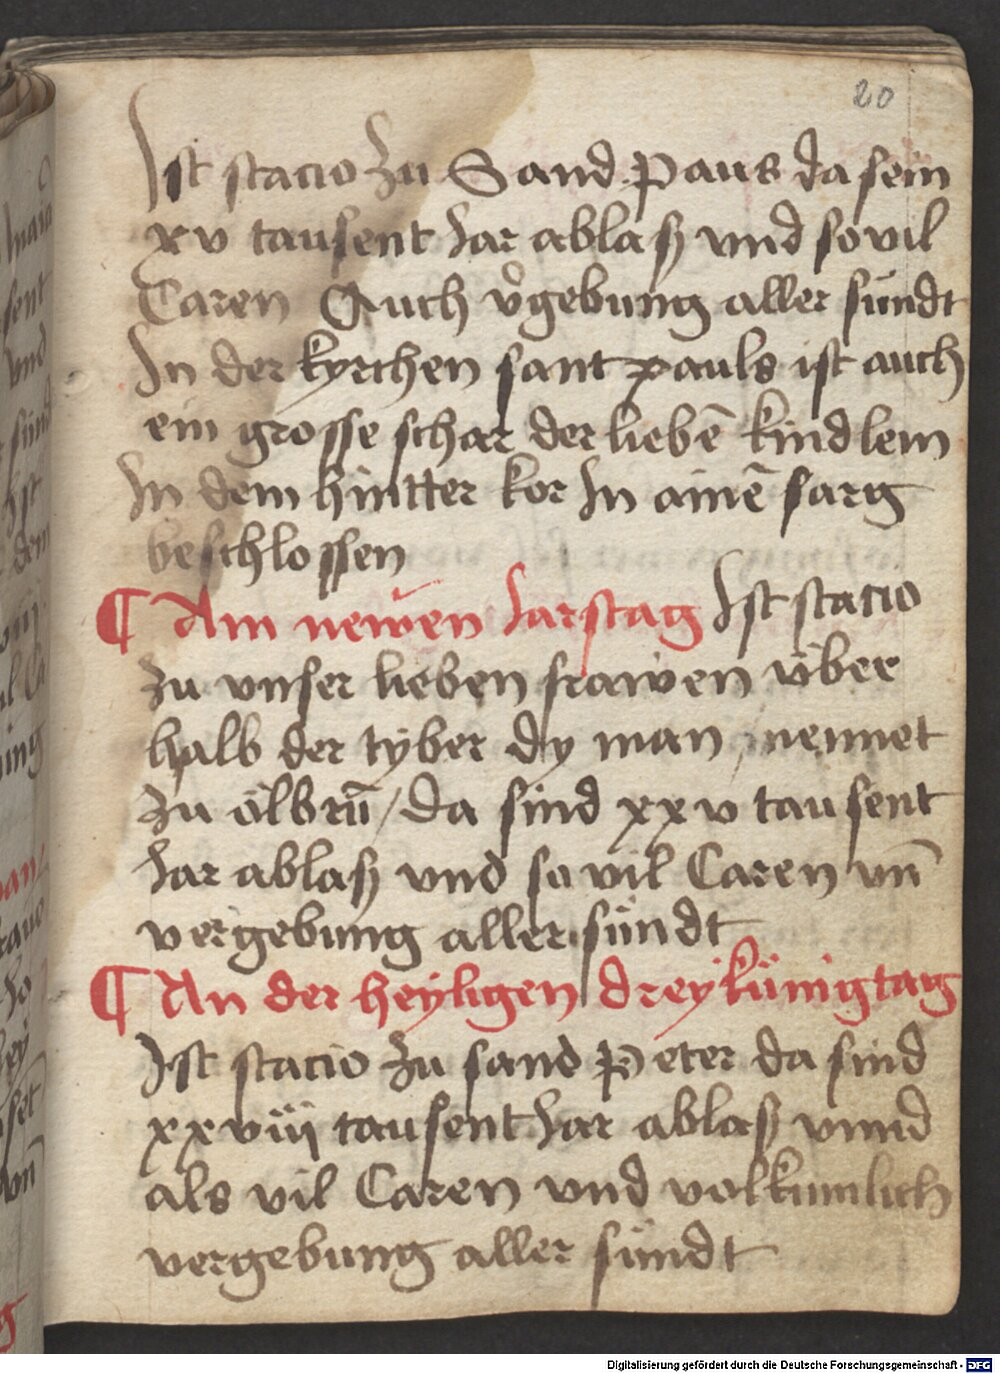 20
Ist stacio zu Sand Paus da sein
xv tausent Jar ablaß vnd so vil
Caren Auch v̊gebung aller sündt
In der kyrchen sant pauls ist auch
ein grosse schar der liebē kindlein
In dem hintter kor In ainē sarg
beschlossen
¶ Am newen Jarstag Ist stacio
zu vnser lieben frawen über
halb der tyber dy man nennet
zu ölbrū / da sind xxv tausent
Jar ablaß vnd so vil Caren vn̄
vergebung aller sündt
¶ An der heyligen dreykünigtag
Ist stacio zu sand Peter da sind
xxviij tausent Jar ablaß vnnd
als vil Caren vnd volkumlich
vergebung aller sündt
Digitalisierung gefördert durch die Deutsche Forschungsgemeinschaft - DFG